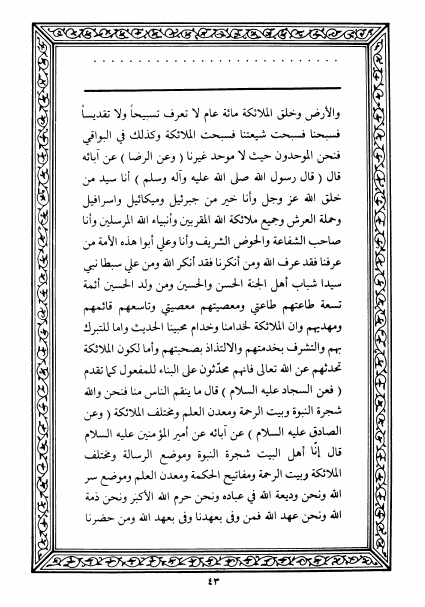 والأرض وخلق الملائكة مائة عام لا تعرف تسبيحاً ولا تقديساً
فسبحنا فسبحت شيعتنا فسبحت الملائكة وكذلك في البواقي
فنحن الموحدون حيث لا موحد غيرنا ( وعن الرضا ) عن آبائه
قال ( قال رسول الله صلى الله عليه وآله وسلم ) أنا سيد من
خلق الله عز وجل وأنا خير من جبرئيل وميكائيل واسرافيل
وحملة العرش وجميع ملائكة الله المقربين وأنبياء الله المرسلين وأنا
صاحب الشفاعة والحوض الشريف وأنا وعلي أبوا هذه الأمة من
عرفنا فقد عرف الله ومن أنكرنا فقد أنكر الله ومن علي سبطا نبي
سيدا شباب أهل الجنة الحسن والحسين ومن ولد الحسين أئمة
تسعة طاعتهم طاعتي ومعصيتهم معصيتي وتاسعهم قائمهم
ومهديهم وان الملائكة لخدامنا وخدام محبينا الحديث واما للتبرك
بهم والتشرف بخدمتهم والالتذاذ بصحبتهم وأما لكون الملائكة
تحدثهم عن الله تعالى فانهم محدّثون على البناء للمفعول كما تقدم
( فعن السجاد عليه السلام ) قال ما ينقم الناس منا فنحن والله
شجرة النبوة وبيت الرحمة ومعدن العلم ومختلف الملائكة ( وعن
الصادق عليه السلام ) عن آبائه عن أمير المؤمنين عليه السلام
قال إنّا أهل البيت شجرة النبوة وموضع الرسالة ومختلف
الملائكة وبيت الرحمة ومفاتيح الحكمة ومعدن العلم وموضع سر
الله ونحن وديعة الله في عباده ونحن حرم الله الأكبر ونحن ذمة
الله ونحن عهد الله فمن وفى بعهدنا وفى بعهد الله ومن حضرنا
٤٣